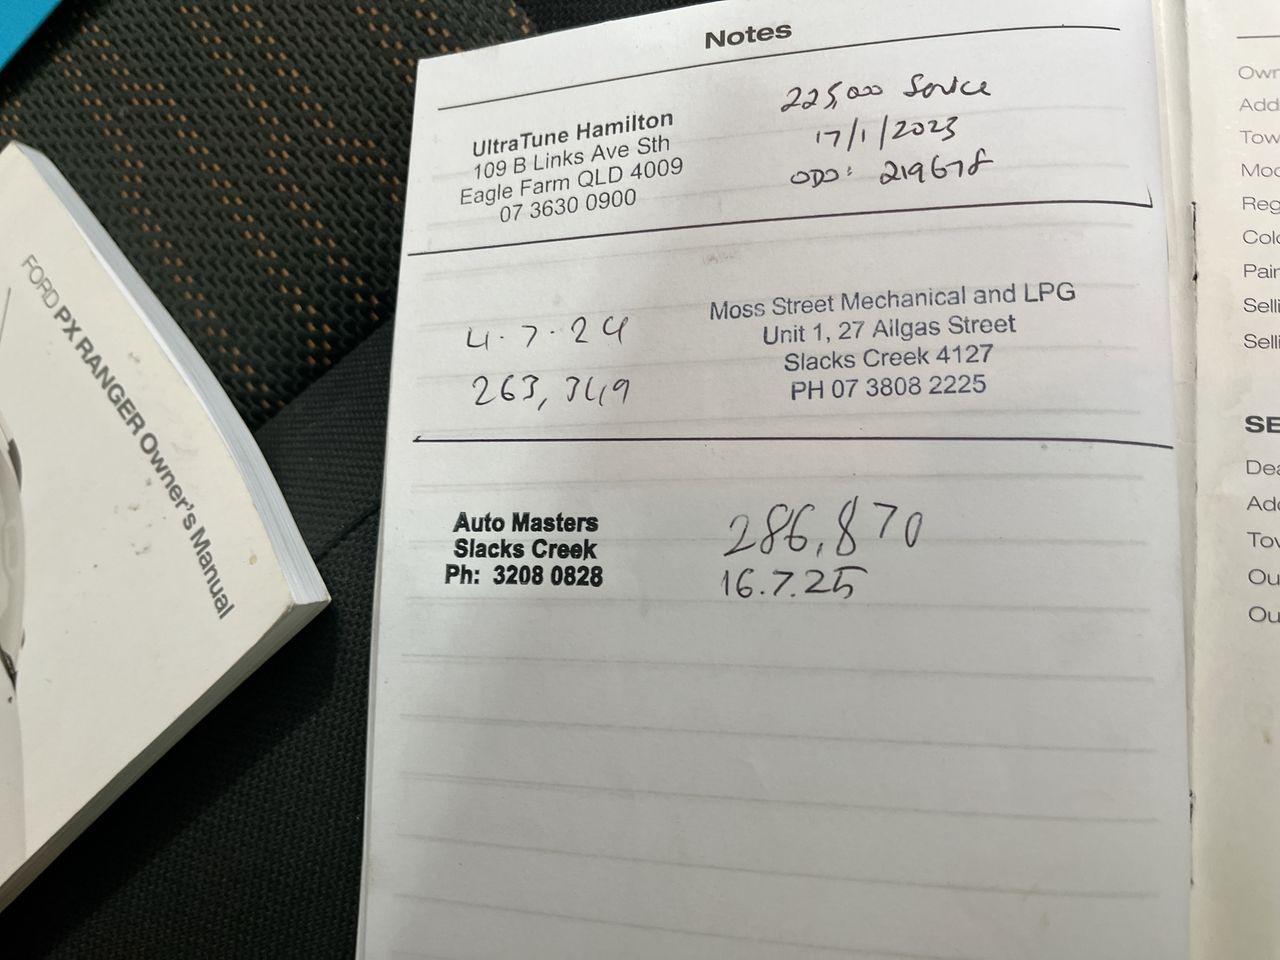 Notes
UltraTune Hamilton
109 B Links Ave Sth
Eagle Farm QLD 4009
07 3630 0900
225,000 Service
17/1/2023
ODO: 219678
4.7.24
263,349
Moss Street Mechanical and LPG
Unit 1, 27 Ailgas Street
Slacks Creek 4127
PH 07 3808 2225
Auto Masters
Slacks Creek
Ph: 3208 0828
286,870
16.7.25
FORD PX RANGER Owner's Manual
Own
Add
Tow
Mod
Reg
Colo
Pain
Selli
Selli
SE
Dea
Add
Tov
Ou
Ou